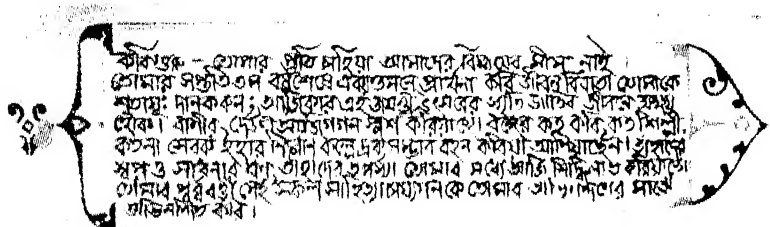 কবিগুরু – তোমার প্রতি চাহিয়া আমাদের বিস্ময়ের সীমা নাই।
তোমার সপ্ততিতম বর্ষশেষে একান্তমনে প্রার্থনা করি জীবন বিধাতা তোমাকে
শতায়ুঃ দান করুন; আজিকার এই জয়ন্তী উৎসবের স্মৃতি জাতির জীবনে অক্ষয়
হোক। বাণীর দেউল আজি গগন স্পর্শ করিয়াছে। বঙ্গের কত কবি, কত শিল্পী,
কতনা সেবক ইহার নির্মাণ কল্পে দ্রব্যসম্ভার বহন করিয়া আনিয়াছেন। তাঁহাদের
স্বপ্ন ও সাধনার ধন তাঁহাদের তপস্যা তোমার মধ্যে আজি সিদ্ধিলাভ করিয়াছে।
তোমার পূর্ববর্তী সেই সকল সাহিত্যাচার্য্যগণকে তোমার অভিনন্দনের মাঝে
অভিনন্দিত করি।